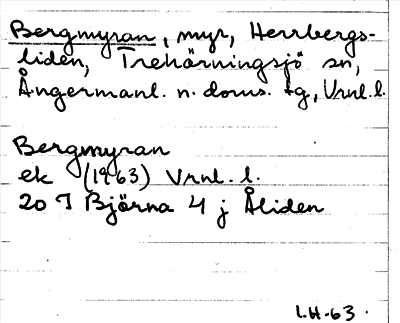 Bergmyran, myr, Herrbergs-
liden, Trehörningsjö sn,
Ångermanl. n. doms. tg, Vrnl. l.
Bergmyran
ek (1963) Vrnl. l.
20 I Björna 4 j Åliden
L.H-63.